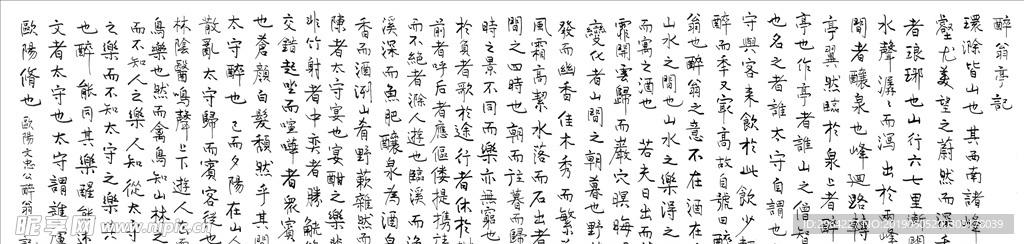 醉翁亭記
環滁皆山也其西南諸峰
壑尤美望之蔚然而深
者琅琊也山行六七里漸
水聲潺潺而瀉出於兩峰
間者釀泉也峰迴路轉
亭翼然臨於泉上者醉
亭也作亭者誰山之僧
也名之者誰太守自謂也
守與客來飲於此飲少
醉而年又最高故自號曰醉
翁也醉翁之意不在酒在
山水之間也山水之樂得之
而寓之酒也 若夫日出而
霏開雲歸而巖穴暝晦
變化者山間之朝暮也野
發而幽香佳木秀而繁
風霜高潔水落而石出
間之四時也朝而往暮而歸
時之景不同而樂亦無窮
於負者歌於途行者休於
前者呼后者應傴僂提攜
而不絕者滁人遊也臨溪而
溪深而魚肥釀泉為酒泉
香而酒洌山肴野蔌雜然
陳者太守宴也宴酣之樂
非竹射者中奕者勝觥
交錯起坐而喧嘩者眾賓
也蒼顏白髮頹然乎其間
太守醉也 已而夕陽在山
散亂太守歸而賓客從也
林陰翳鳴聲上下遊人
鳥樂也然而禽鳥知山林
而不知人之樂人知從太守
之樂而不知太守之樂
也醉能同其樂醒能述
文者太守也太守謂誰廬
歐陽脩也 歐陽文忠公醉翁